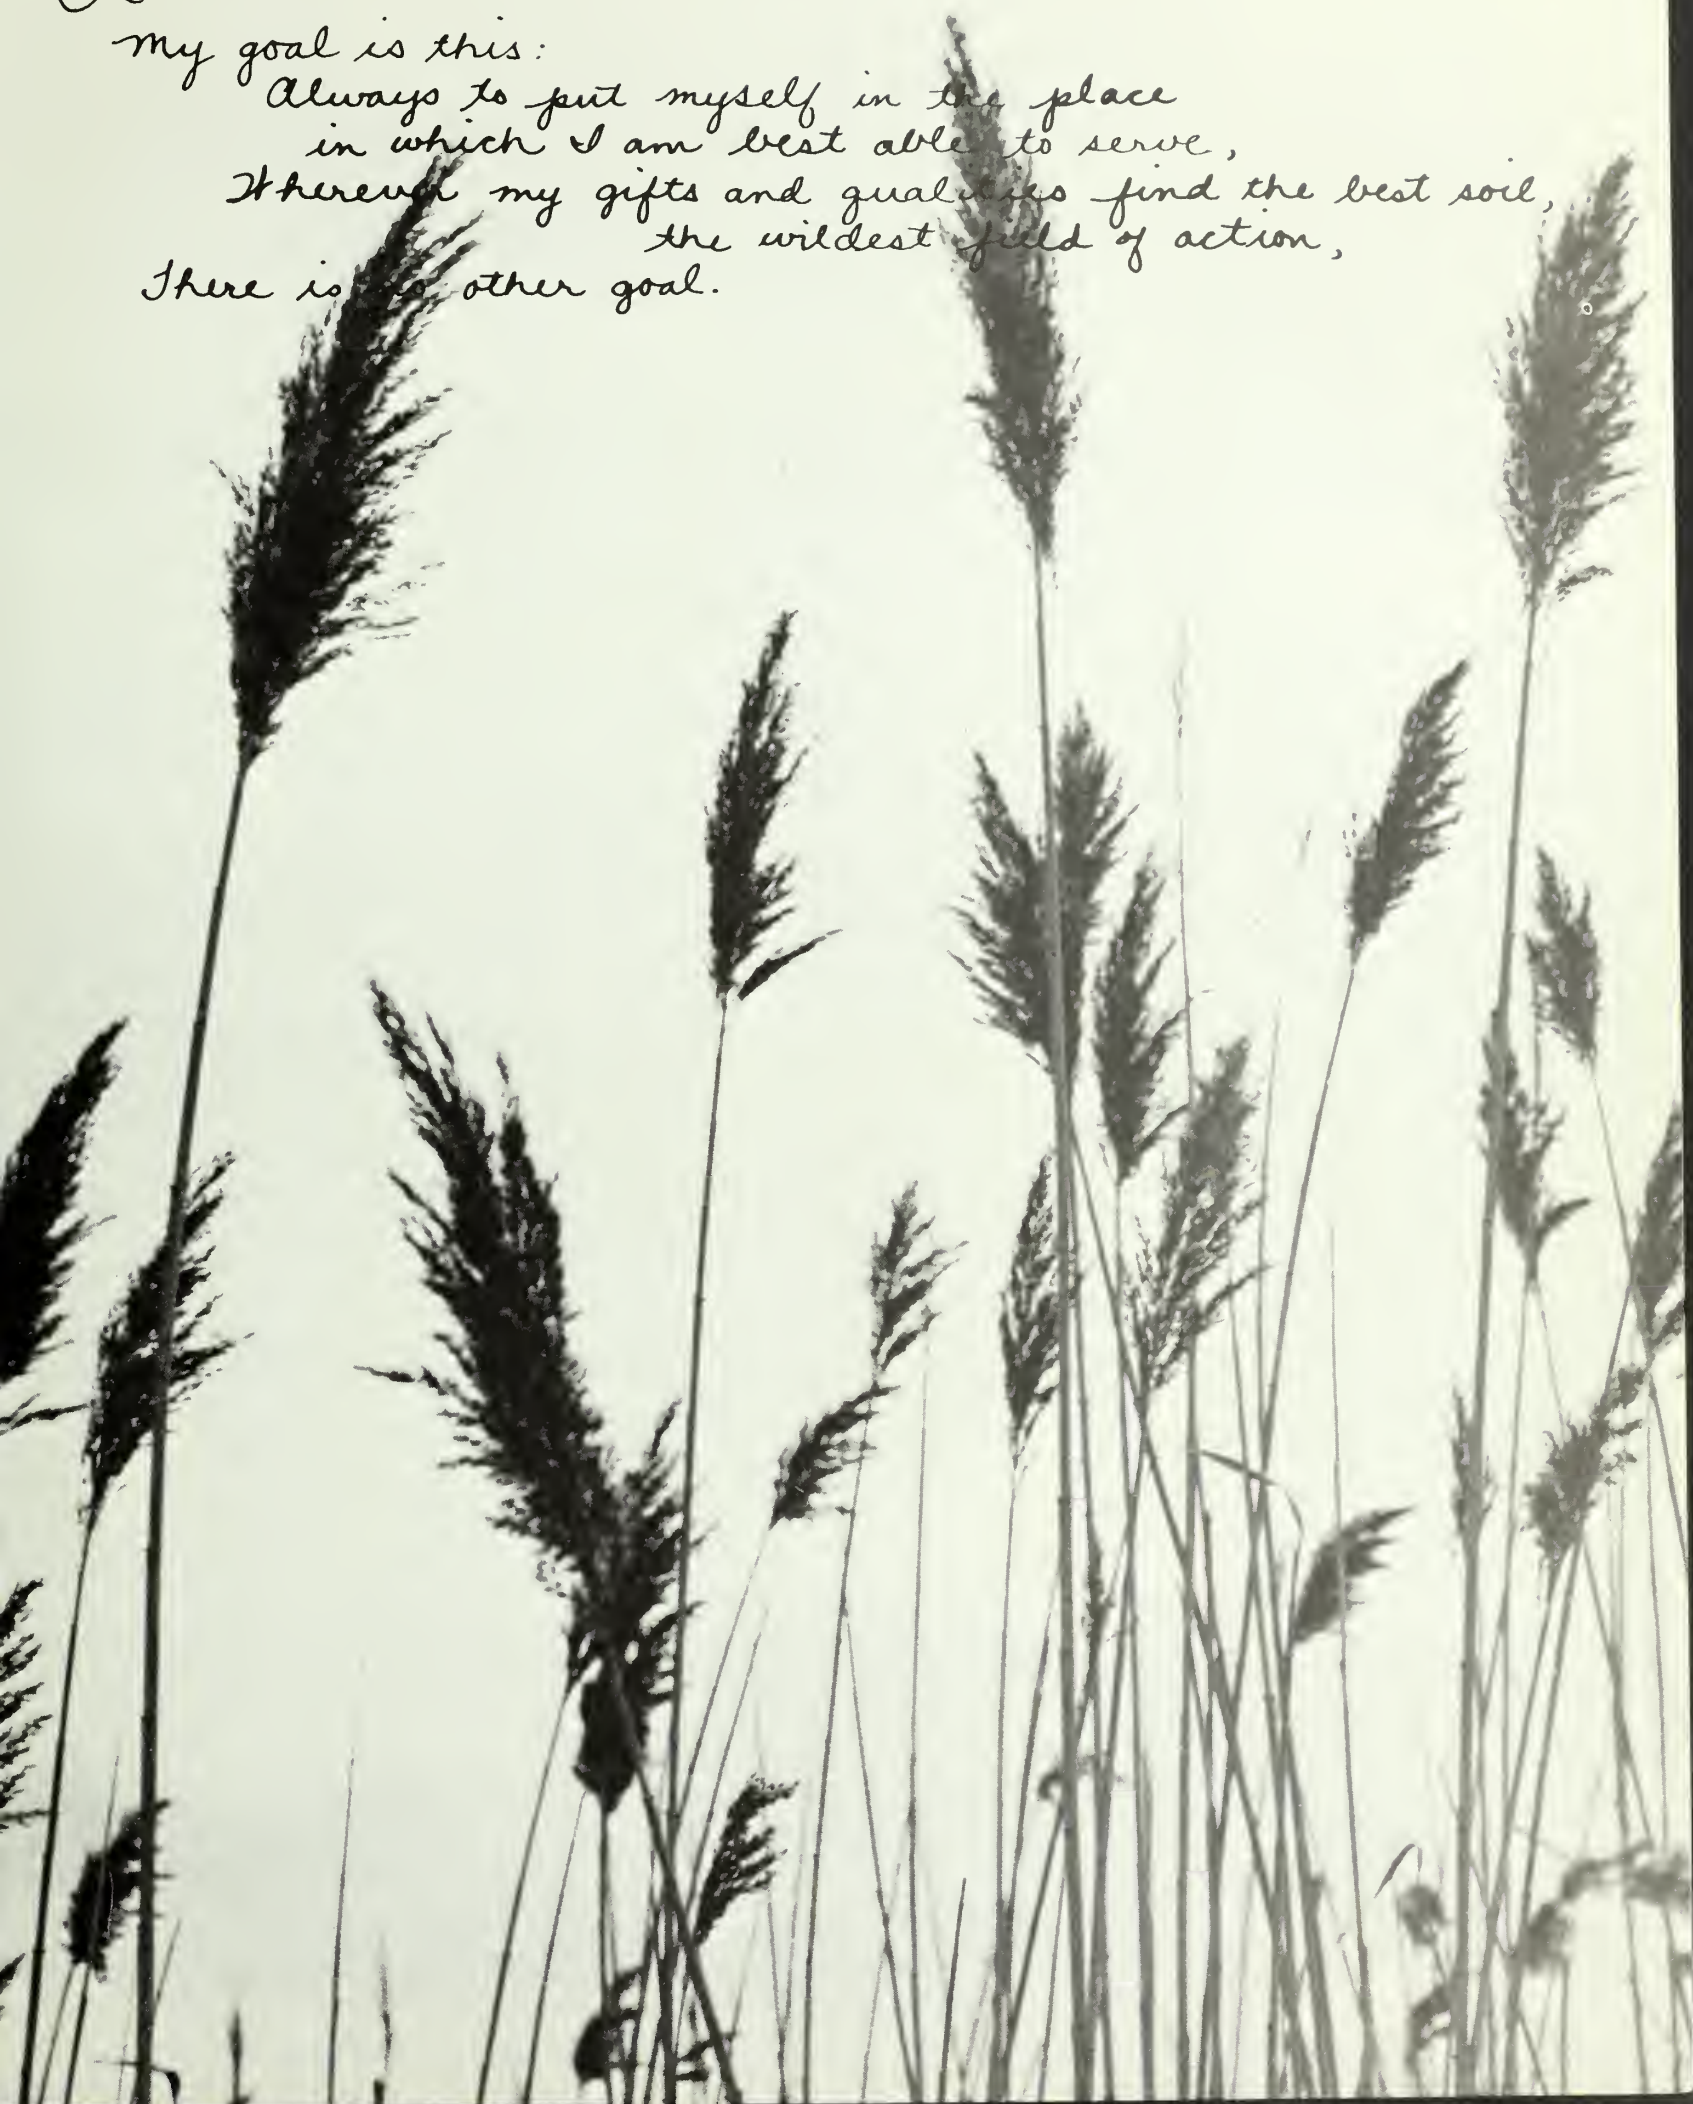 My goal is this:
Always to put myself in the place
in which I am best able to serve,
Wherever my gifts and qualities find the best soil,
the wildest field of action,
There is no other goal.